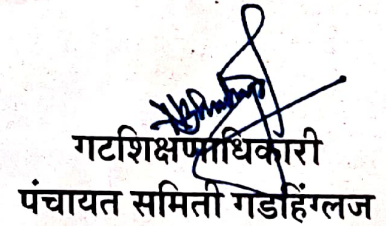 गटशिक्षणाधिकारी
पंचायत समिती गडहिंग्लज